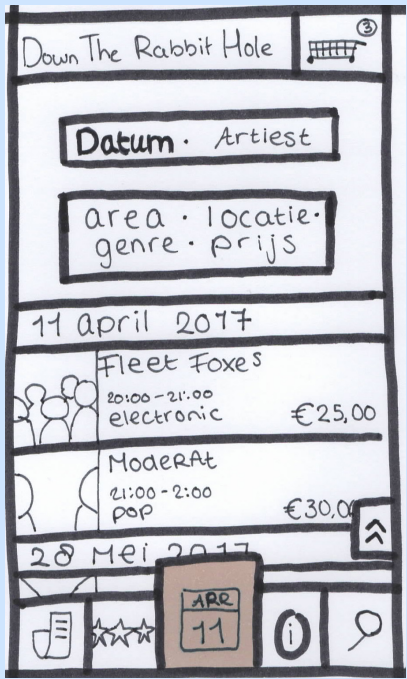 Down The Rabbit Hole
3
Datum · Artiest
area · locatie ·
genre · prijs
11 april 2017
Fleet Foxes
20:00 - 21:00
electronic €25,00
ModeRAt
21:00 - 2:00
pop €30,00
28 mei 2017
APR
11
i